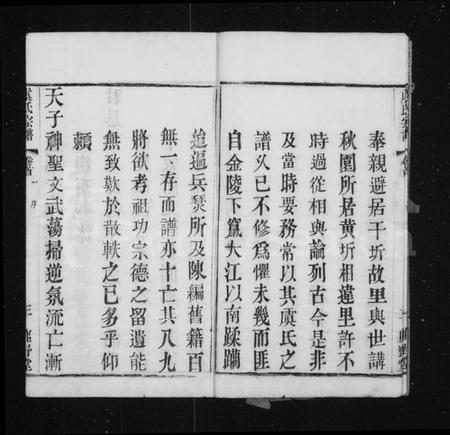 奉親避居干圻故里與世講
秋園所居黃圻相違里許不
時過從相與論列古今是非
及當時要務常以其虞氏之
譜乆已不修爲懼未幾而匪
自金陵下竄大江以南蹂躪
迨遍兵燹所及陳編舊籍百
無一存而譜亦十亡其八九
將欲考祖功宗德之留遺能
無致歎於散軼之已多乎仰
賴
天子神聖文武蕩掃逆氛流亡漸
虞氏宗譜 卷首 序